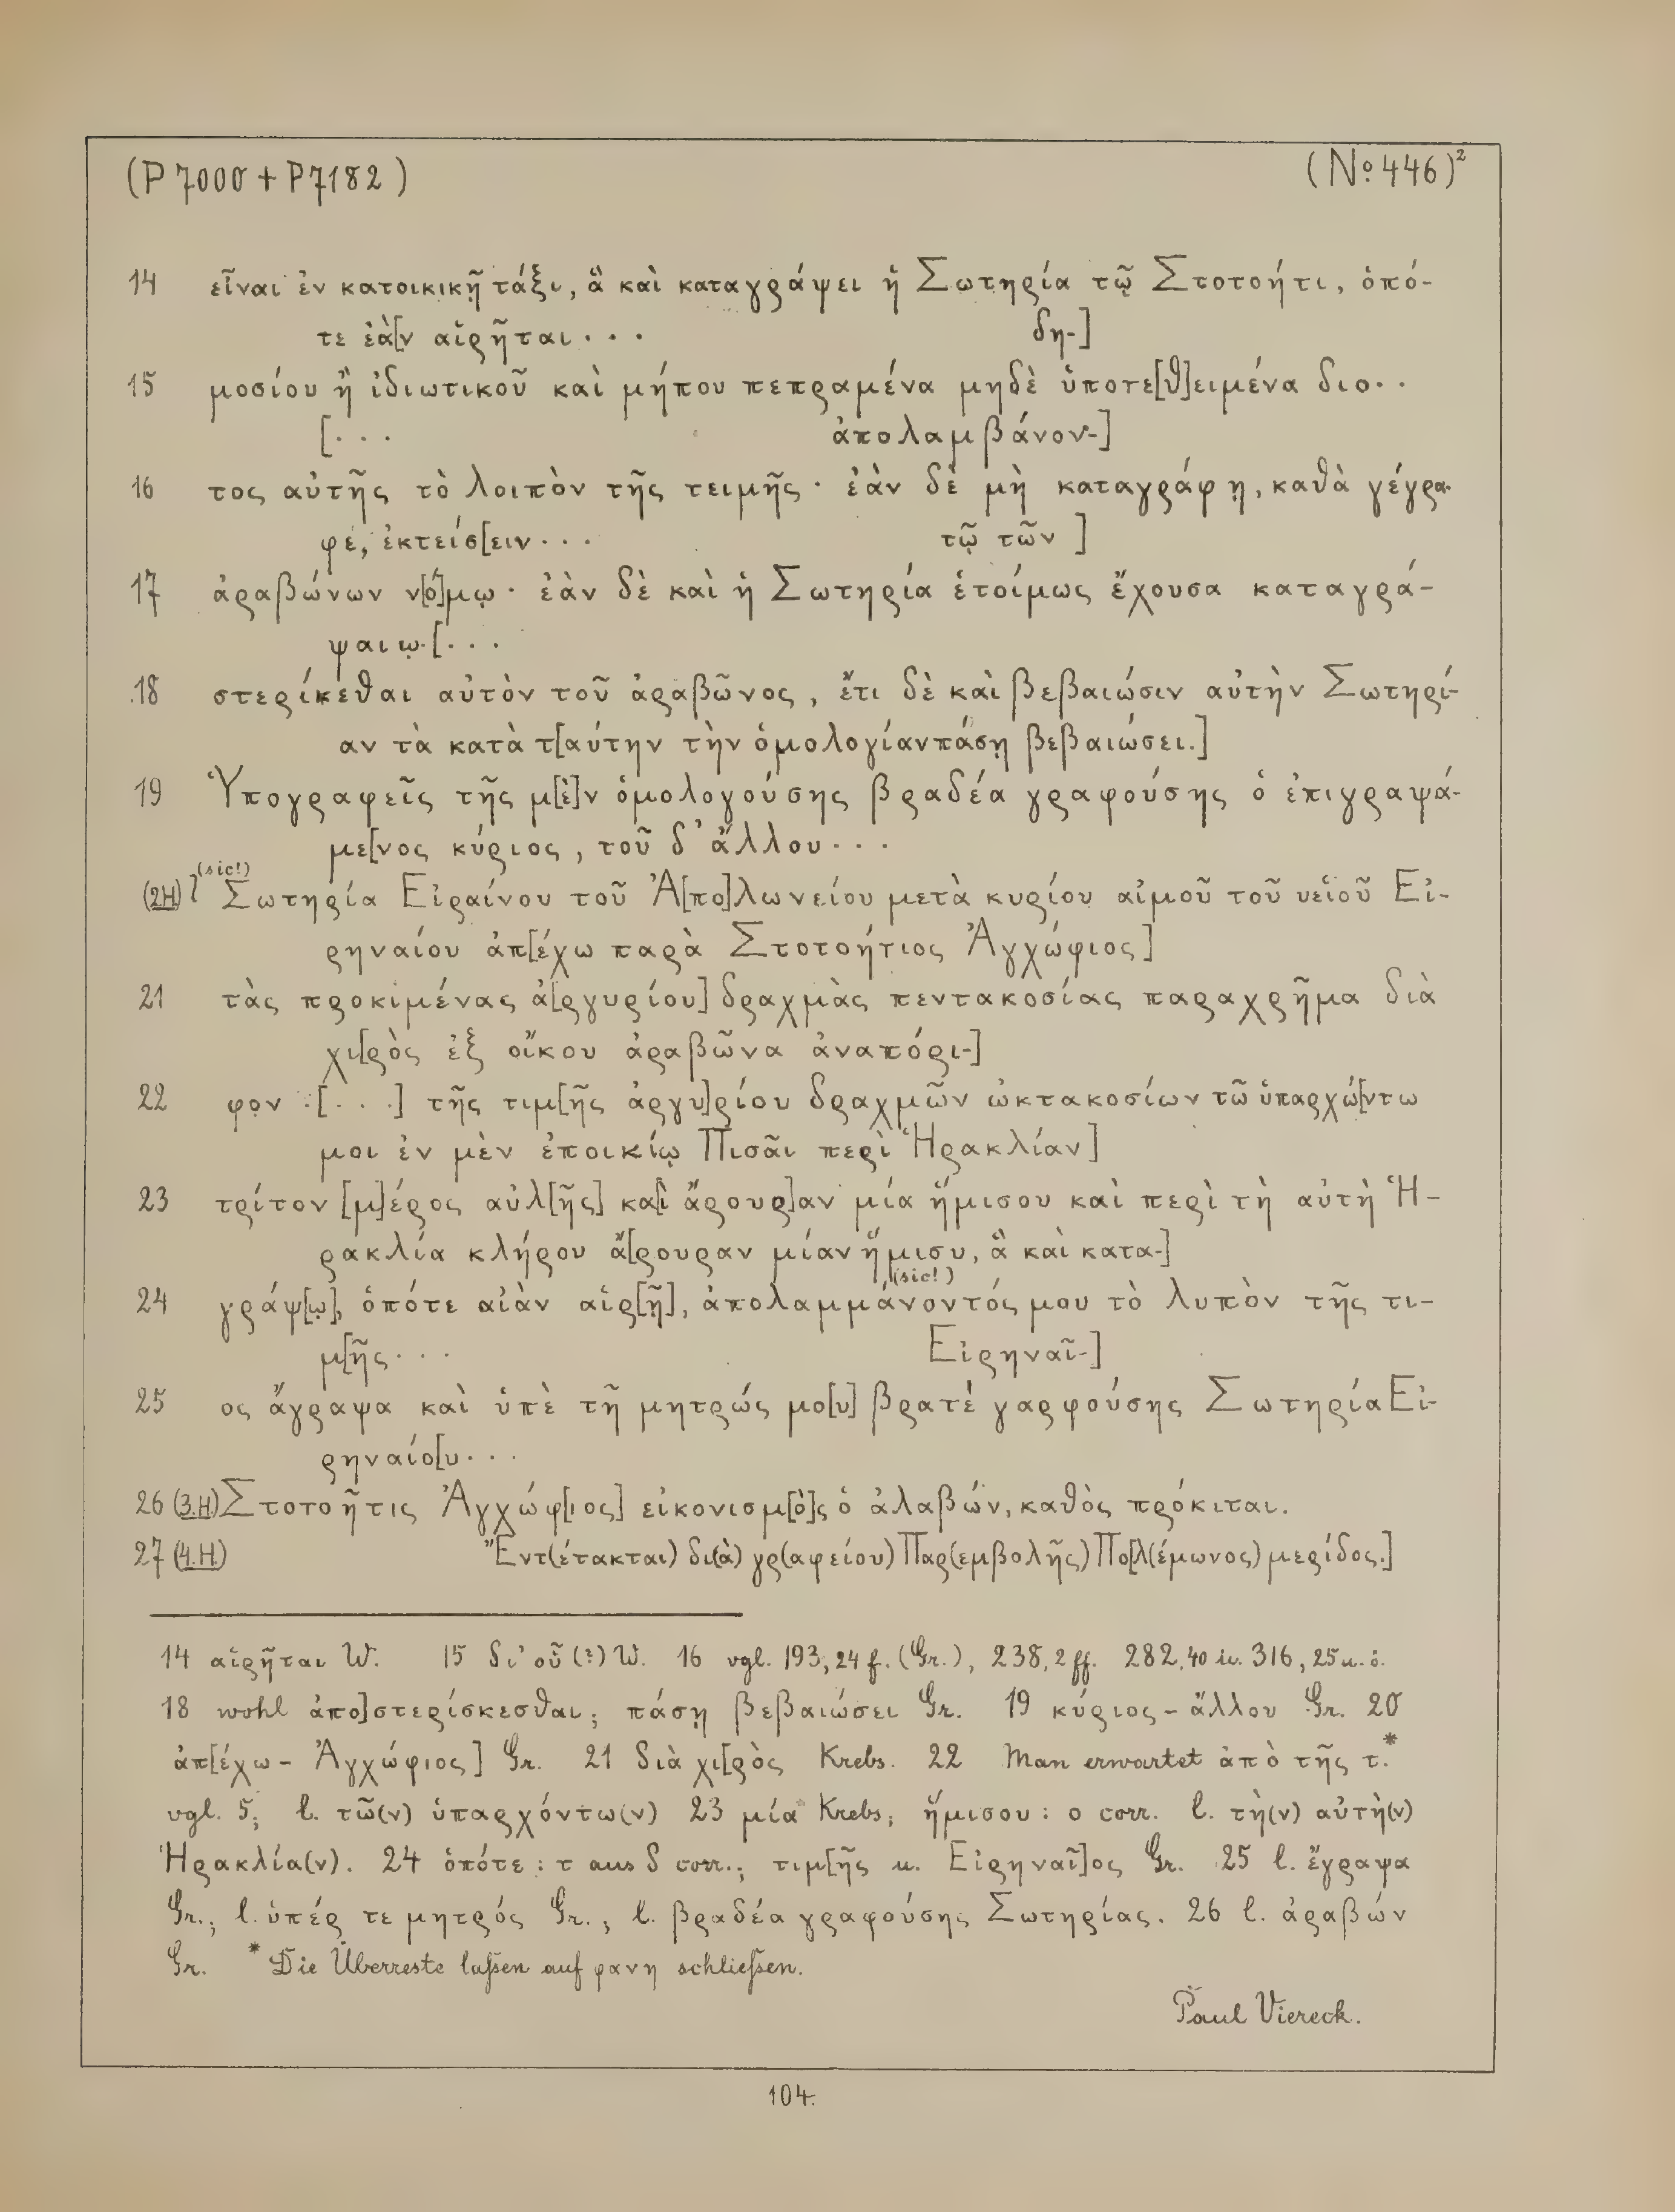 (P 7000 + P 7182)
(No. 446)²
14 εἶναι ἐν κατοικικῇ τάξι, ἃ καὶ καταγράψει ἡ Σωτηρία τῷ Στοτοήτι, ὁπό-
τε ἐὰ[ν αἱρῆται . . . δη-]
15 μοσίου ἢ ἰδιωτικοῦ καὶ μήπου πεπραμένα μηδὲ ὑποτε[θ]ειμένα διο . .
[. . . ἀπολαμβάνον-]
16 τος αὐτῆς τὸ λοιπὸν τῆς τειμῆς · ἐὰν δὲ μὴ καταγράφῃ, καθὰ γέγρα-
φε, ἐκτείσ[ειν . . . τῷ τῶν ]
17 ἀραβώνων ν[ό]μῳ · ἐὰν δὲ καὶ ἡ Σωτηρία ἑτοίμως ἔχουσα καταγρά-
ψαι ῳ.[. . .
18 στερίκεθαι αὐτὸν τοῦ ἀραβῶνος, ἔτι δὲ καὶ βεβαιώσιν αὐτὴν Σωτηρί-
αν τὰ κατὰ τ[αύτην τὴν ὁμολογίαν πάσῃ βεβαιώσει.]
19 Ὑπογραφεῖς τῆς μ[ὲ]ν ὁμολογούσης βραδέα γραφούσης ὁ ἐπιγραψά-
με[νος κύριος, τοῦ δ' ἄλλου . . .
(2.H) (sic!) Σωτηρία Εἰραίνου τοῦ Ἀ[πο]λωνείου μετὰ κυρίου αἰμοῦ τοῦ υεἱοῦ Εἰ-
ρηναίου ἀπ[έχω παρὰ Στοτοήτιος Ἀγχώφιος]
21 τὰς προκιμένας ἀ[ργυρίου] δραχμὰς πεντακοσίας παραχρῆμα διὰ
χι[ρὸς ἐξ οἴκου ἀραβῶνα ἀναπόρι-]
22 φον .[. . .] τῆς τιμ[ῆς ἀργυ]ρίου δραχμῶν ὠκτακοσίων τῶ ὑπαρχώ[ντω
μοι ἐν μὲν ἐποικίῳ Πισᾶι περὶ Ἡρακλίαν]
23 τρίτον [μ]έρος αὐλ[ῆς] κα[ὶ ἄρουρ]αν μία ἥμισου καὶ περὶ τὴ αὐτὴ Ἡ-
ρακλία κλήρου ἄ[ρουραν μίαν ἥμισυ, ἃ καὶ κατα-]
24 γράψ[ω], ὁπότε αἰὰν αἱρ[ῇ], ἀπολαμμάνοντός (sic!) μου τὸ λυπὸν τῆς τι-
μ[ῆς . . . Εἰρηναῖ-]
25 ος ἄγραψα καὶ ὑπὲ τῆ μητρώς μο[υ] βρατέ γαρφούσης Σωτηρία Εἰ-
ρηναίο[υ . . .
26 (3.H.) Στοτοῆτις Ἀγχώφ[ιος] εἰκονισμ[ὸ]ς ὁ ἀλαβών, καθὸς πρόκιται.
27 (4.H.) Ἐντ(έτακται) δι(ὰ) γρ(αφείου) Παρ(εμβολῆς) Πο[λ(έμωνος) μερίδος.]
14 αἱρῆται W. 15 δι' οὗ (?) W. 16 vgl. 193, 24 f. (Gr.), 238, 2 ff. 282, 40 u. 316, 25 u. ö.
18 wohl ἀπο]στερίσκεσθαι; πάσῃ βεβαιώσει Gr. 19 κύριος – ἄλλου Gr. 20
ἀπ[έχω – Ἀγχώφιος] Gr. 21 διὰ χι[ρὸς Krebs. 22 Man erwartet ἀπὸ τῆς τ.*
vgl. 5; l. τῶ(ν) ὑπαρχόντω(ν) 23 μία Krebs; ἥμισου: ο corr. l. τὴ(ν) αὐτὴ(ν)
Ἡρακλία(ν). 24 ὁπότε: τ aus δ corr.; τιμ[ῆς u. Εἰρηναῖ]ος Gr. 25 l. ἔγραψα
Gr.; l. ὑπέρ τε μητρός Gr.; l. βραδέα γραφούσης Σωτηρίας. 26 l. ἀραβών
Gr. * Die Überreste lassen auf φανη schließen.
Paul Viereck.
104.